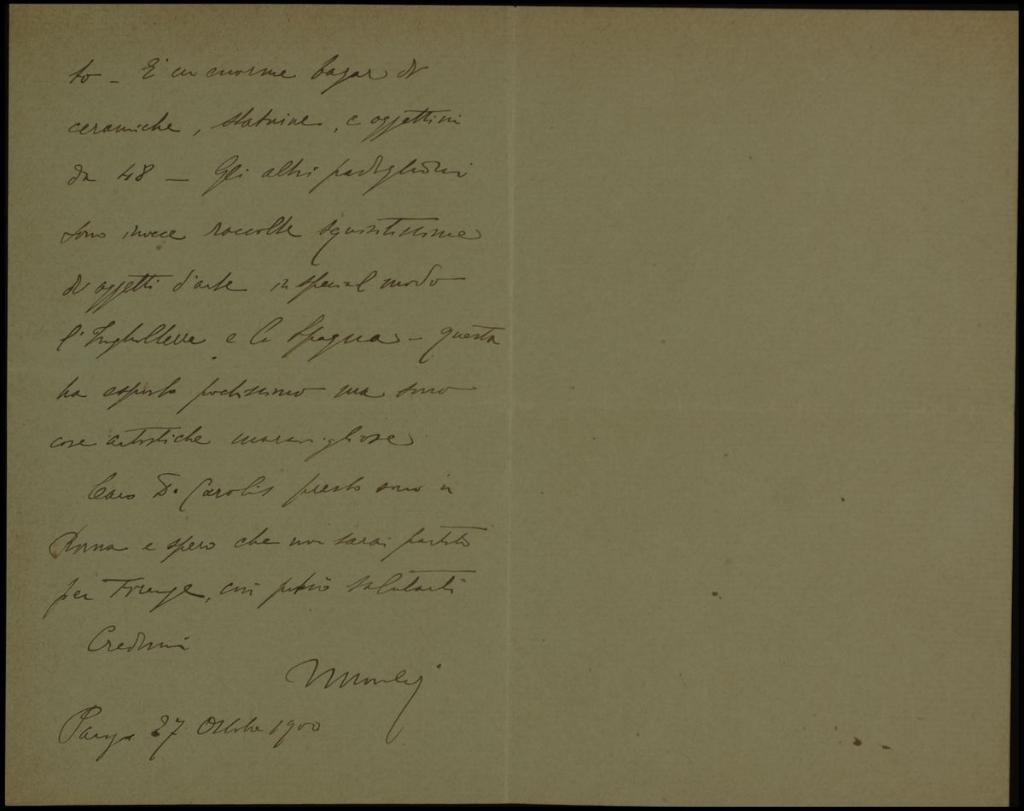 to _ È un enorme bazar di
ceramiche, statuine, e oggettini
da 48 _ Gli altri padiglioni
sono invece raccolte squisitissime
di oggetti d'arte in special modo
l'Inghilterra e la Spagna _ questa
ha esposto pochissimo ma sono
cose artistiche maravigliose
Caro De Carolis presto sono in
Roma e spero che non sarai partito
per Firenze, così potrò salutarti
Credimi
Parigi 27 Ottobre 1900